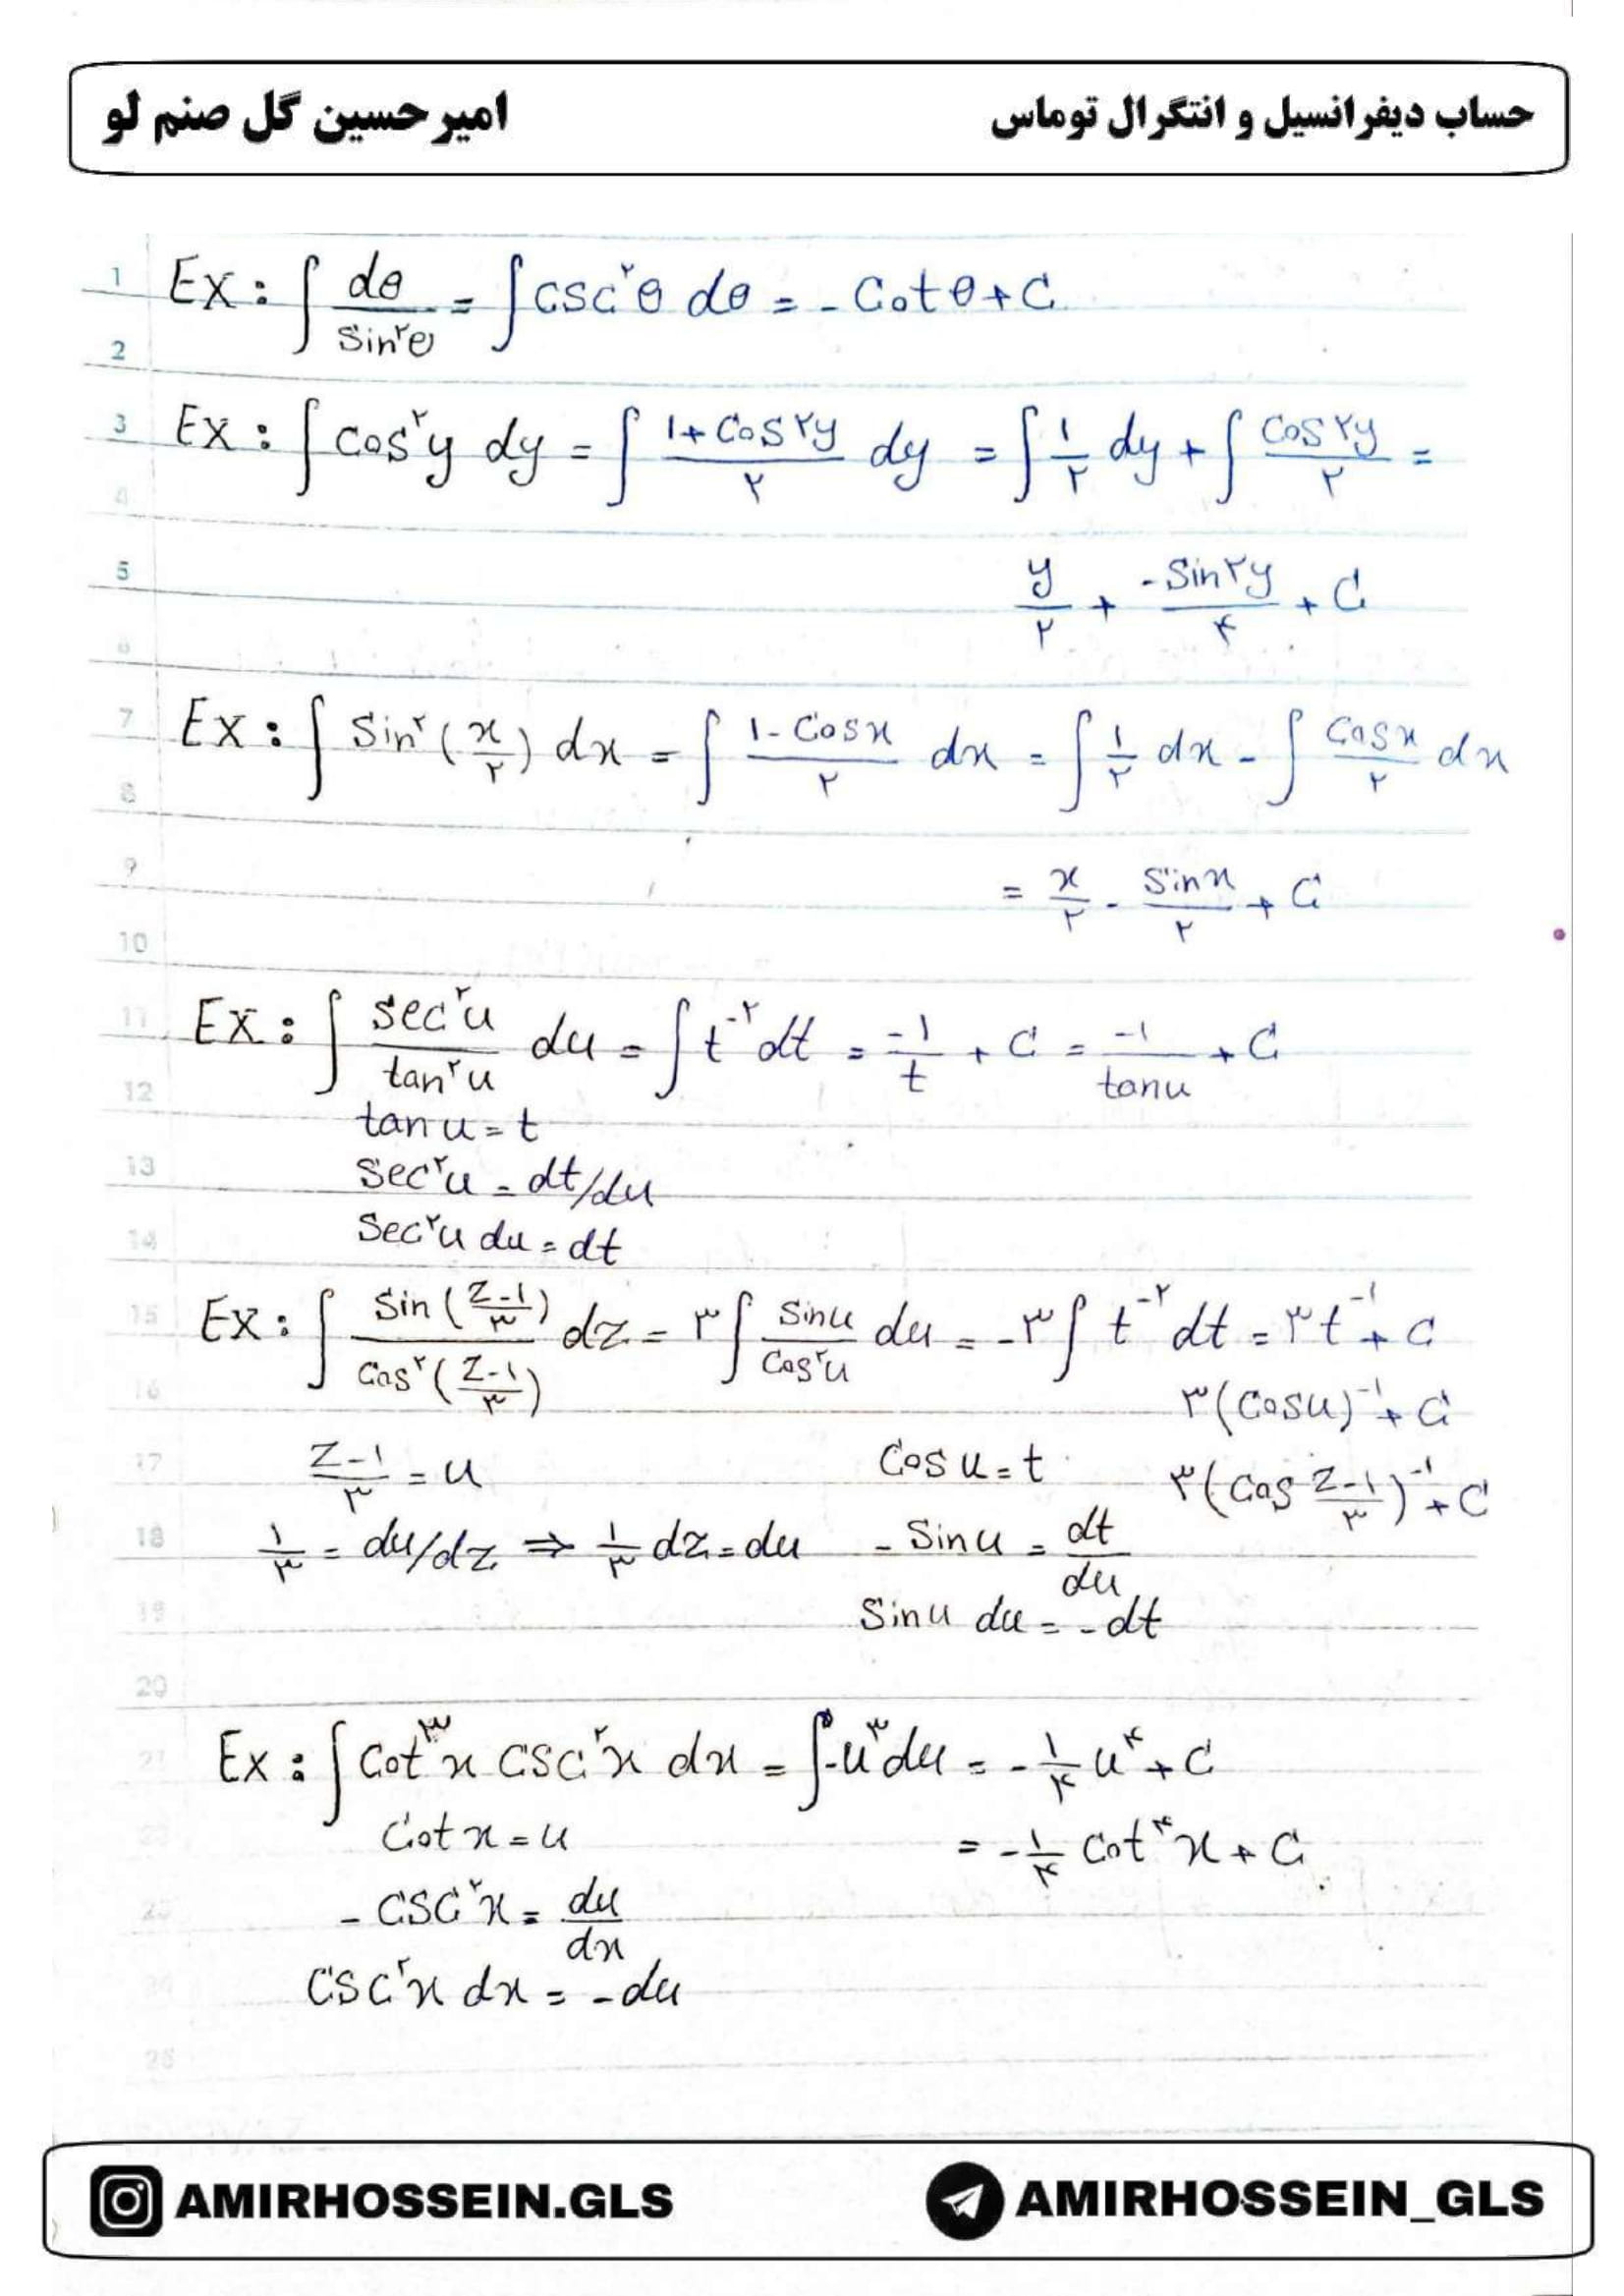 حساب دیفرانسیل و انتگرال توماس
امیرحسین گل صنم لو
1 Ex: ∫ dθ/sin^۲θ = ∫ csc^۲θ dθ = -Cotθ + C
2
3 Ex: ∫ cos^۲y dy = ∫ (۱+Cos۲y)/۲ dy = ∫ ۱/۲ dy + ∫ Cos۲y/۲ =
4
5 y/۲ + -Sin۲y/۴ + C
6
7 Ex: ∫ Sin^۲(x/۲) dx = ∫ (۱-Cosx)/۲ dx = ∫ ۱/۲ dx - ∫ Cosx/۲ dx
8
9 = x/۲ - Sinx/۲ + C
10
11 Ex: ∫ sec^۲u/tan^۲u du = ∫ t^-۲ dt = -۱/t + C = -۱/tanu + C
12 tanu = t
13 Sec^۲u = dt/du
14 Sec^۲u du = dt
15 Ex: ∫ Sin((z-۱)/۳)/Cos^۲((z-۱)/۳) dz = ۳∫ Sinu/Cos^۲u du = -۳∫ t^-۲ dt = ۳t^-۱ + C
16 ۳(Cosu)^-۱ + C
17 (z-۱)/۳ = u Cosu = t ۳(Cos (z-۱)/۳)^-۱ + C
18 ۱/۳ = du/dz ⇒ ۱/۳ dz = du -Sinu = dt/du
19 Sinu du = -dt
20
21 Ex: ∫ Cot^۳x CSC^۲x dx = ∫-u^۳du = -۱/۴ u^۴ + C
Cotx = u = -۱/۴ Cot^۴x + C
23 -CSC^۲x = du/dx
24 CSC^۲x dx = -du
AMIRHOSSEIN.GLS
AMIRHOSSEIN_GLS